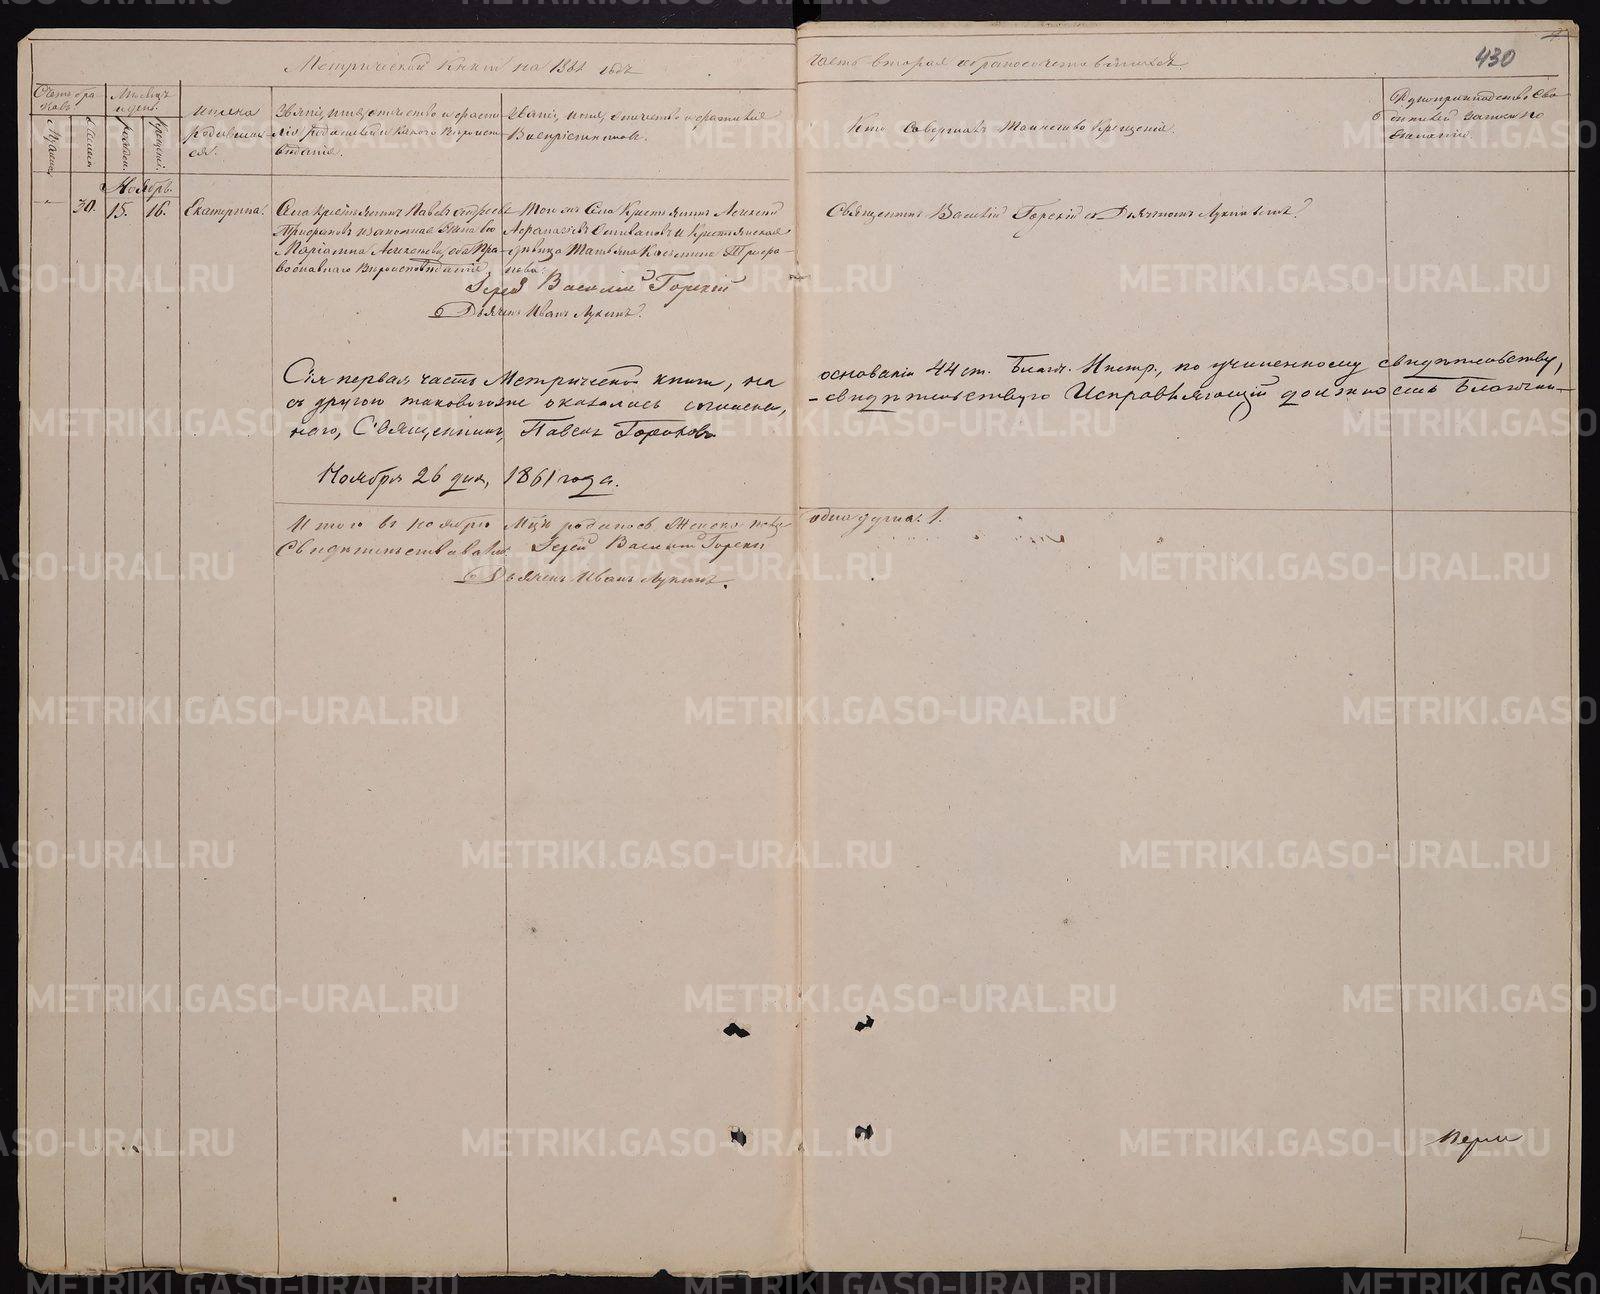 Метрической Книги на 1861 годъ
часть вторая о бракосочетавшихся.
430
Счетъ
Мѣсяцъ и день.
Имена родившихся.
Званіе, имя, отчество и фамилія родителей и какого вѣроисповѣданія.
Званіе, имя, отчество и фамилія воспріемниковъ.
Кто совершалъ таинство крещенія.
Рукоприкладство свидѣтелей записи по желанію.
Ноябрь.
30. 15. 16. Екатерина.
Села Крестьянинъ Павелъ
законная жена его
Маріамна Алексѣева, оба православнаго вѣроисповѣданія.
Тогожъ Села Крестьянинъ Алексѣй
и Крестьянская
дѣвица Татьяна
Священникъ Василій Горскій съ Дьячкомъ
Іерей Василій Горскій
Дьячекъ Иванъ Лукинъ.
Сія первая часть Метрической книги, на основаніи 44 ст. Благоч. Инстр., по учиненному свидѣтельству,
съ другою таковою же оказалась согласна, свидѣтельствую Исправляющій должность Благочиннаго,
Священникъ Павелъ
Ноября 26 дня, 1861 года.
Итого въ ноябрѣ м-цѣ родилось женска пола одна душа. 1.
Свидѣтельствовали: Іерей Василій Горскій
Дьячекъ Иванъ Лукинъ.
METRIKI.GASO-URAL.RU